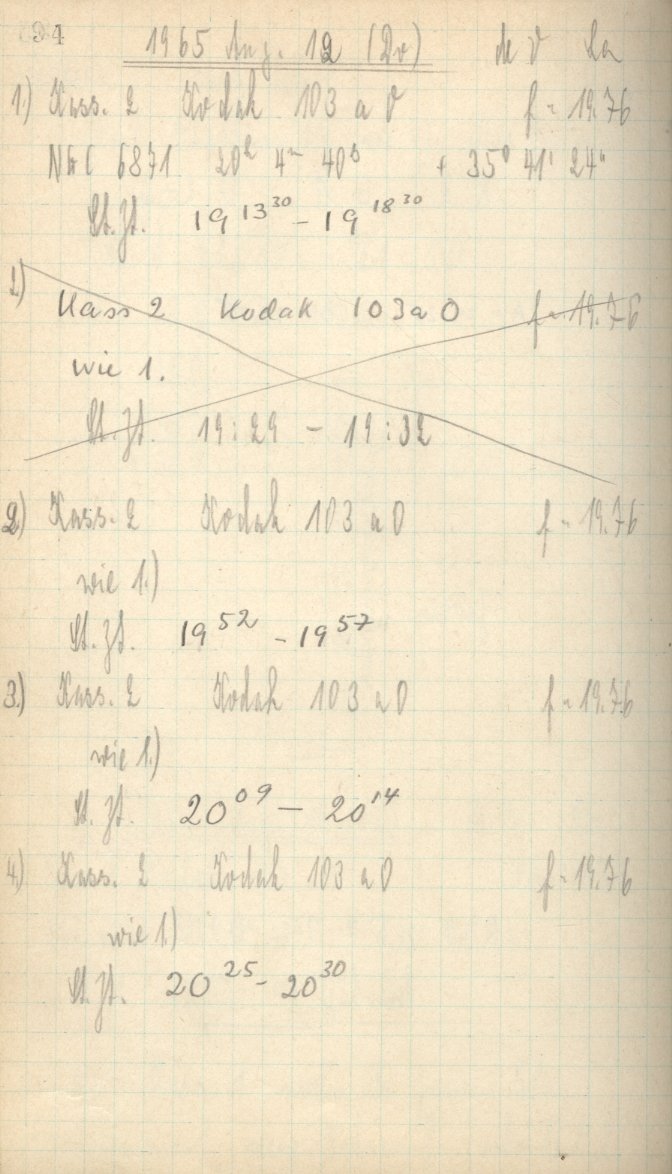 94
1965 Aug. 12 (Do) de V La
1.) Kass. 2 Kodak 103 a O f = 19.76
NGC 6871 20h 4m 40s + 35° 41' 24"
St. Zt. 19 13 30 - 19 18 30
2)
Kass 2 Kodak 103a O f = 19.76
wie 1.
St. Zt. 19:29 - 19:32
2) Kass. 2 Kodak 103 a O f = 19.76
wie 1.)
St. Zt. 19 52 - 19 57
3.) Kass. 2 Kodak 103 a O f = 19.76
wie 1.)
St. Zt. 20 09 - 20 14
4.) Kass. 2 Kodak 103 a O f = 19.76
wie 1.)
St. Zt. 20 25 - 20 30